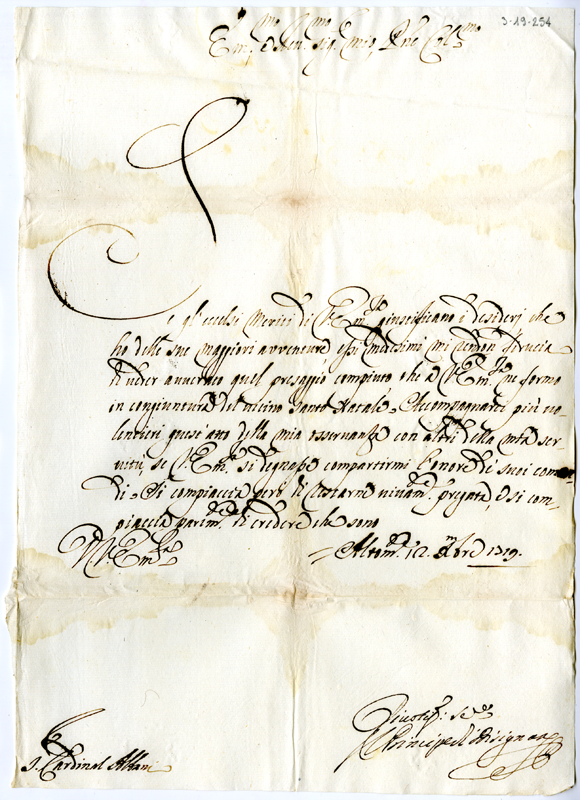 3-19-254
Em.mo e Rev.mo Sig. mio, Pne Col.mo
Se gl'eccelsi Meriti di V. Em.za giustificano i desiderj che
ho delle sue maggiori avventure, essi medesimi mi dendon fiducia
di veder avverato quel presaggio compiuto che a V. Em.za ne formo
in congiuntura del vicino Santo Natale. Accompagnarei più vo-
lentieri quest'atto della mia osservanza con altri della mia ser-
vitù, se V. Em.za si degnasse compartirmi l'onore de suoi coman-
di. Si compiaccia però di restarne vivam.te pregata, e si com-
piaccia parim.te di credere che sono
Di V. Em.za
Altom.te 12. Xbre 1719.
S. Cardinal Albani
Divotiss: Se.re
Il Principe di Bisignano